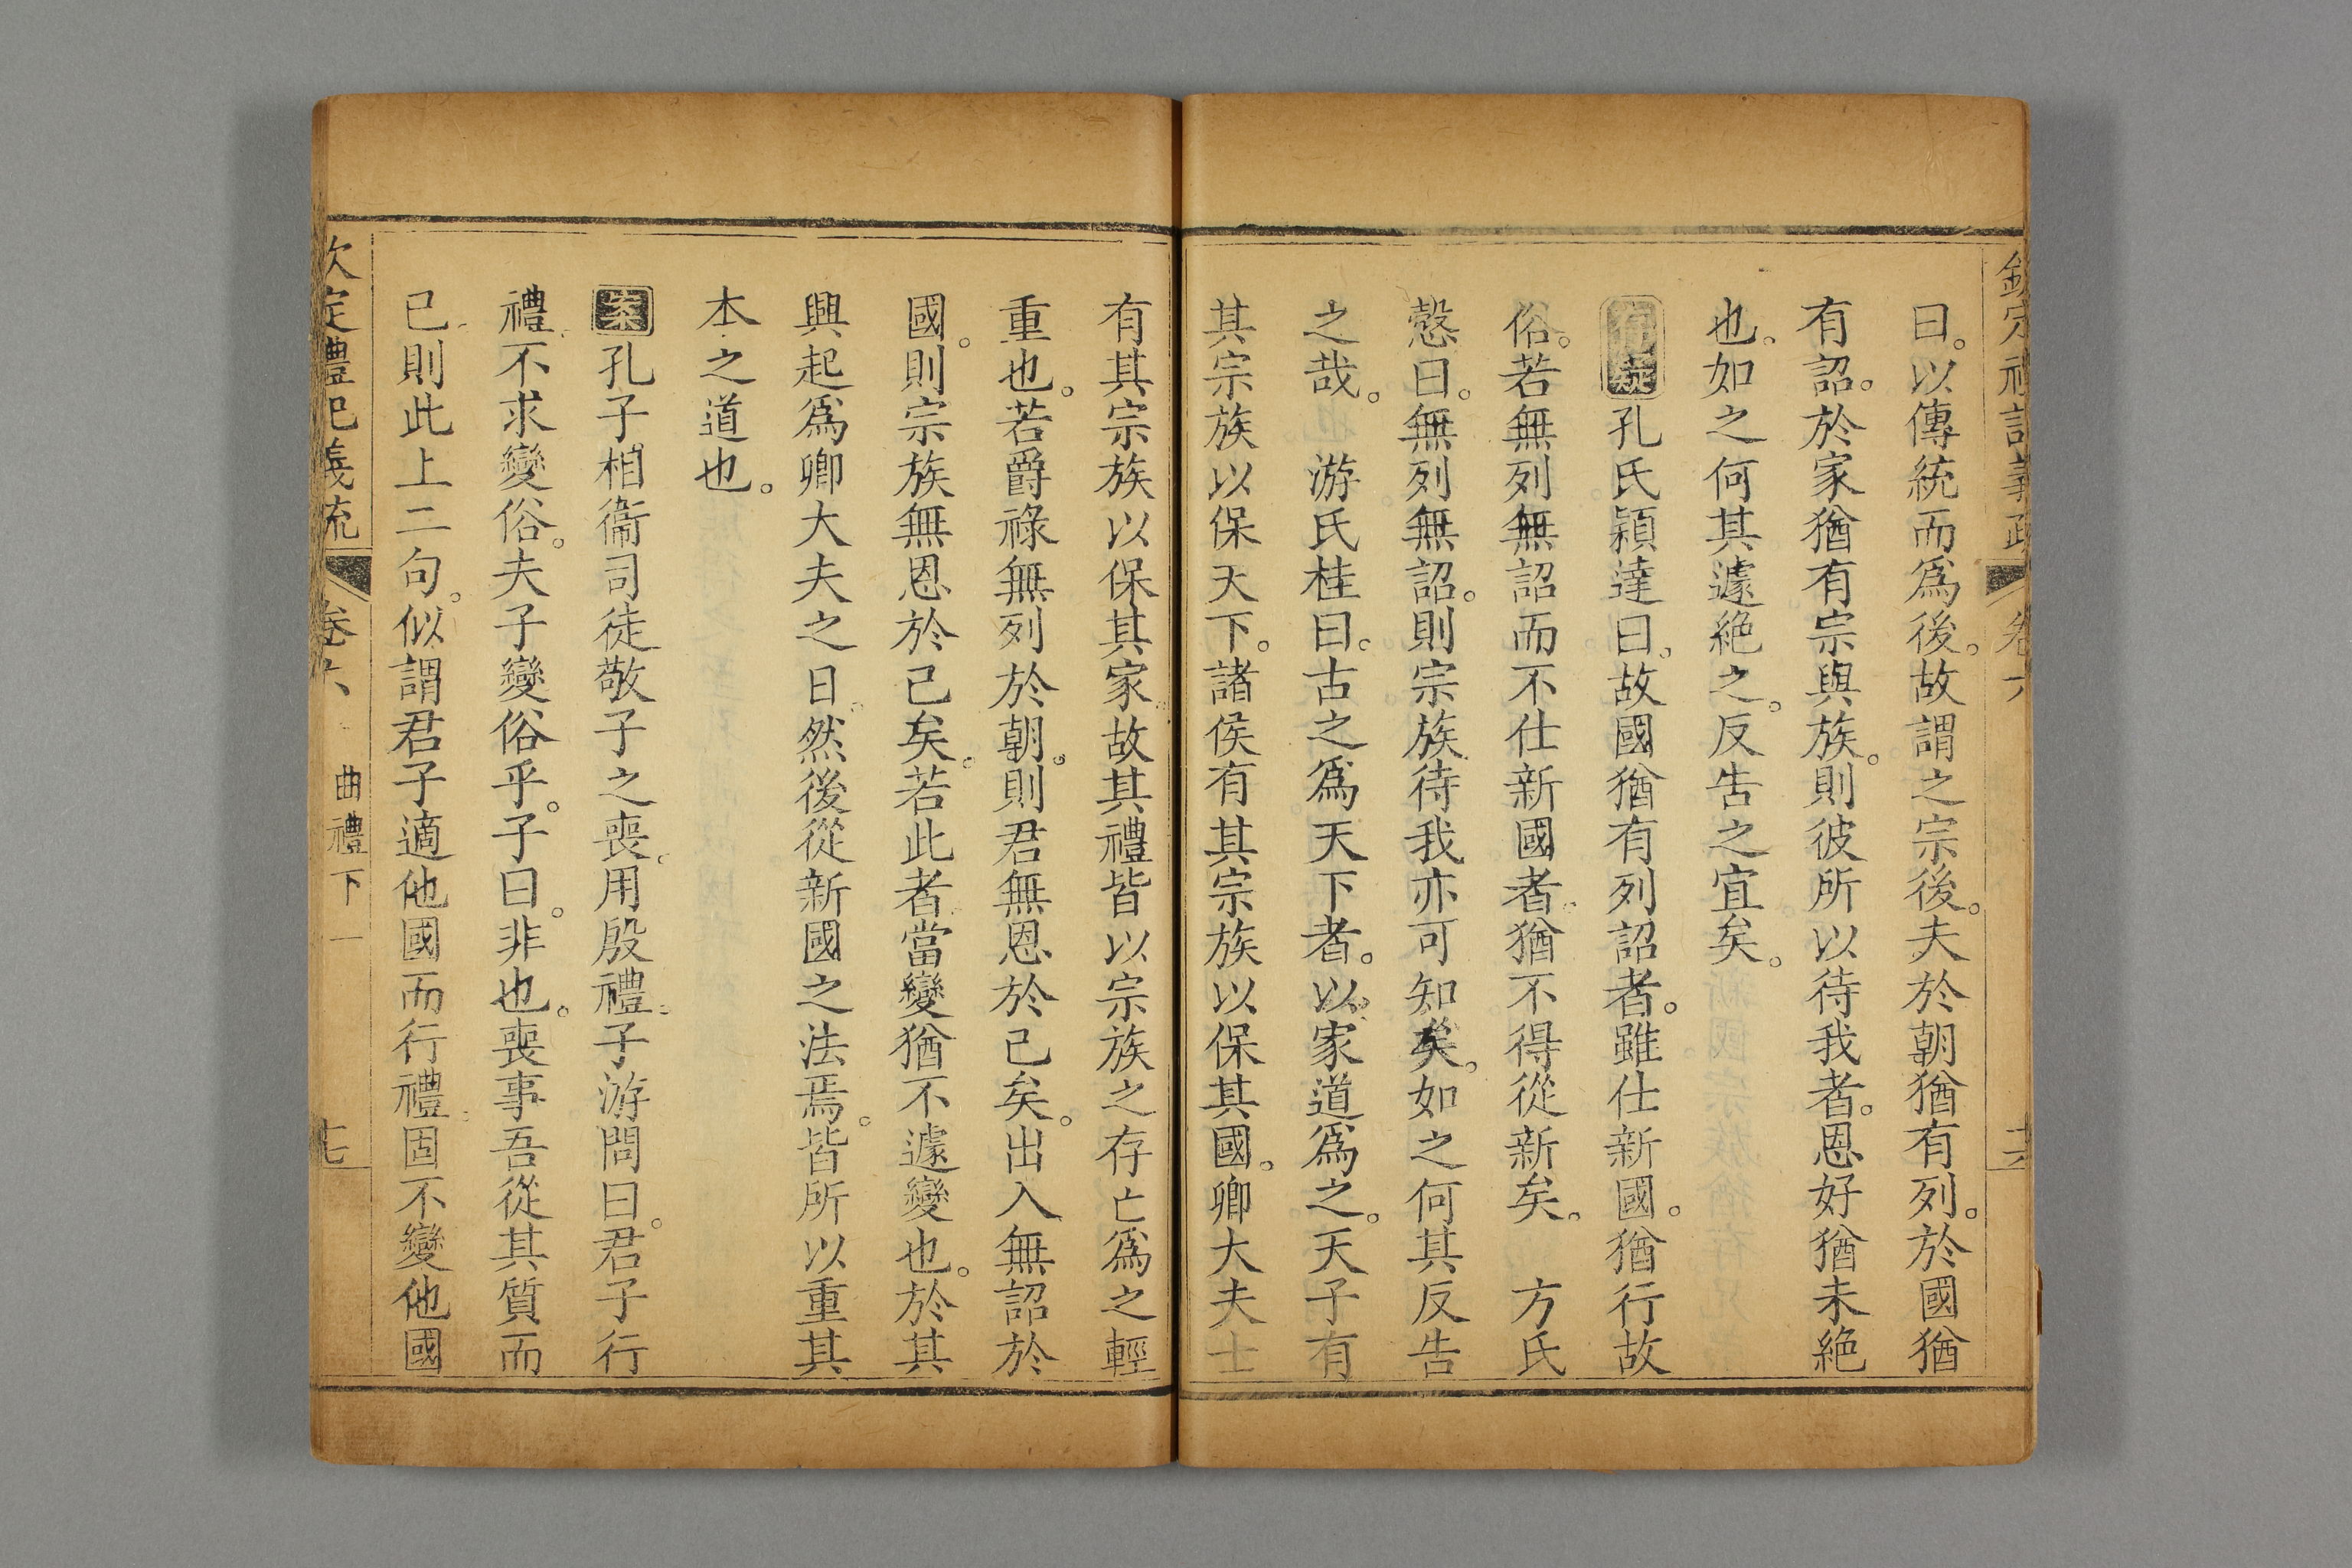 欽定禮記義疏 卷六 十六
曰。以傳統而爲後。故謂之宗後。夫於朝猶有列。於國猶
有詔。於家猶有宗與族。則彼所以待我者。恩好猶未絶
也。如之何其遽絶之。反告之宜矣。
孔氏穎達曰。故國猶有列詔者。雖仕新國。猶行故
俗。若無列無詔而不仕新國者。猶不得從新矣。 方氏
慤曰。無列無詔。則宗族待我亦可知矣。如之何其反告
之哉。 游氏桂曰。古之爲天下者。以家道爲之。天子有
其宗族以保天下。諸侯有其宗族以保其國。卿大夫士
有其宗族以保其家。故其禮皆以宗族之存亡爲之輕
重也。若爵祿無列於朝。則君無恩於己矣。出入無詔於
國。則宗族無恩於己矣。若此者。當變猶不遽變也。於其
興起爲卿大夫之日。然後從新國之法焉。皆所以重其
本之道也。
案孔子相衞司徒敬子之喪。用殷禮。子游問曰。君子行
禮。不求變俗。夫子變俗乎。子曰。非也。喪事吾從其質而
已。則此上二句。似謂君子適他國而行禮。固不變他國
欽定禮記義疏 卷六 曲禮下 一 七